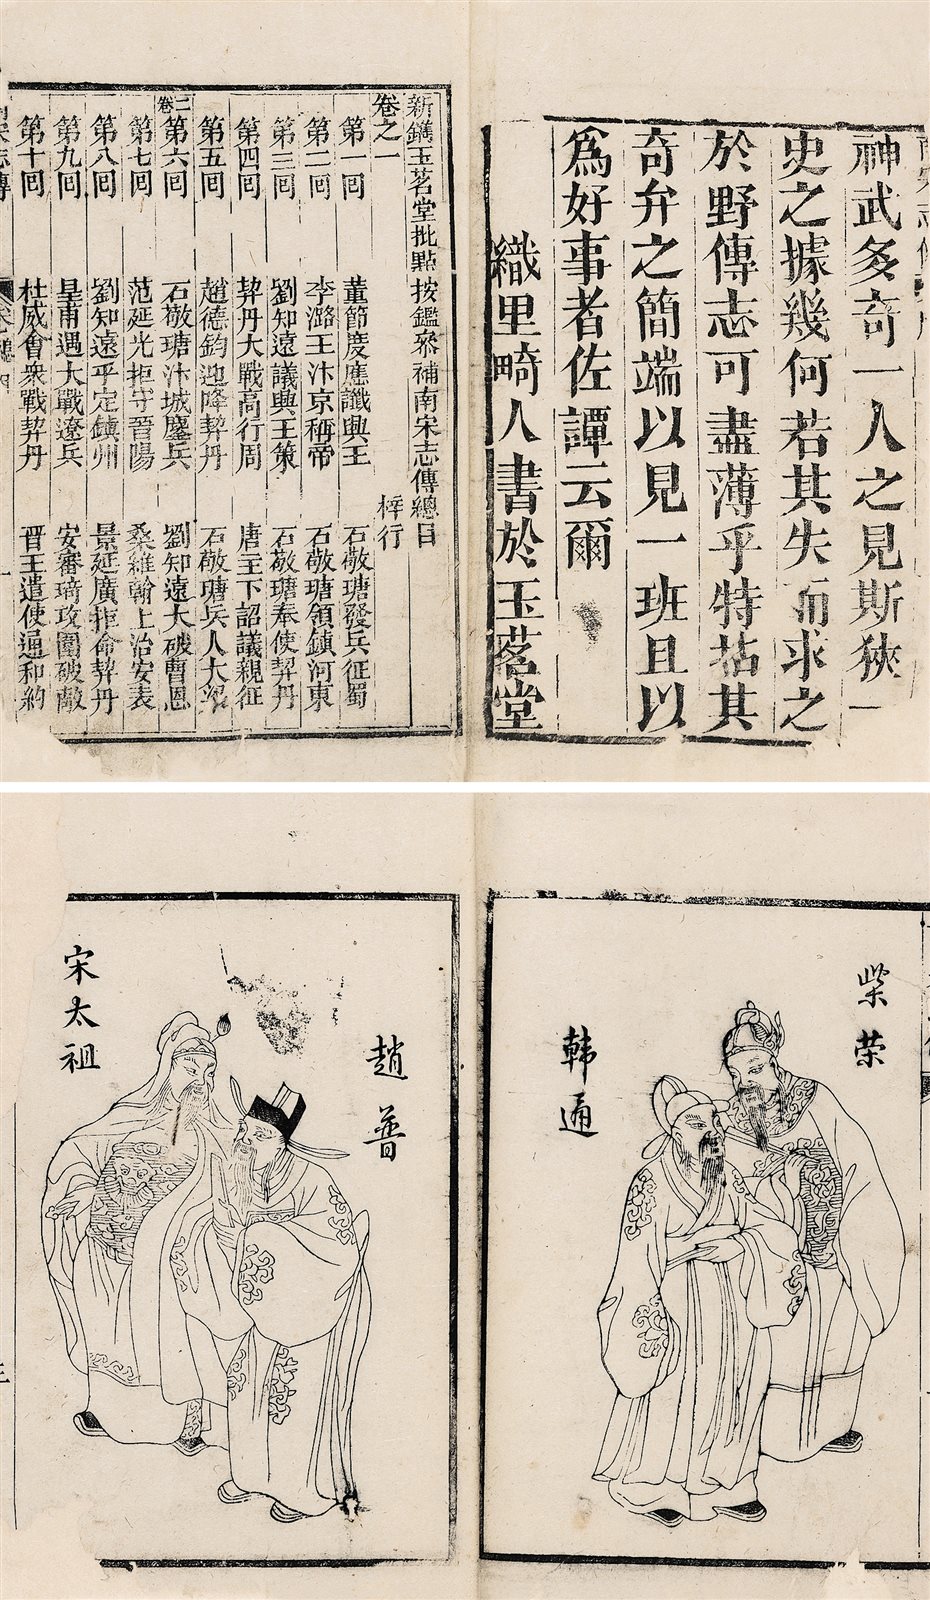 神武多奇一人之見斯狹一
史之據幾何若其失而求之
於野傳志可盡薄乎特拈其
奇弁之簡端以見一班且以
爲好事者佐譚云爾
織里畸人書於玉茗堂
新鐫玉茗堂批點按鑑參補南宋志傳總目
卷之一 梓行
第一回 董節度應讖興王 石敬瑭發兵征蜀
第二回 李潞王汴京稱帝 石敬瑭領鎮河東
第三回 劉知遠議興王策 石敬瑭奉使契丹
第四回 契丹大戰高行周 唐主下詔議親征
第五回 趙德鈞迎降契丹 石敬瑭兵入大梁
二卷
第六回 石敬瑭汴城鏖兵 劉知遠大破曹恩
第七回 范延光拒守晉陽 桑維翰上治安表
第八回 劉知遠平定鎮州 景延廣拒命契丹
第九回 皇甫遇大戰遼兵 安審琦攻圍破敵
第十回 杜威會衆戰契丹 晉王遣使通和約
柴荣
韩通
趙普
宋太祖